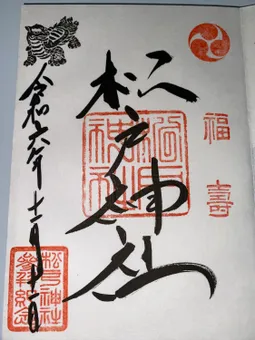 福壽
松戸神社
松戸神社
令和六年十一月廿一日
松戸神社
參拜紀念